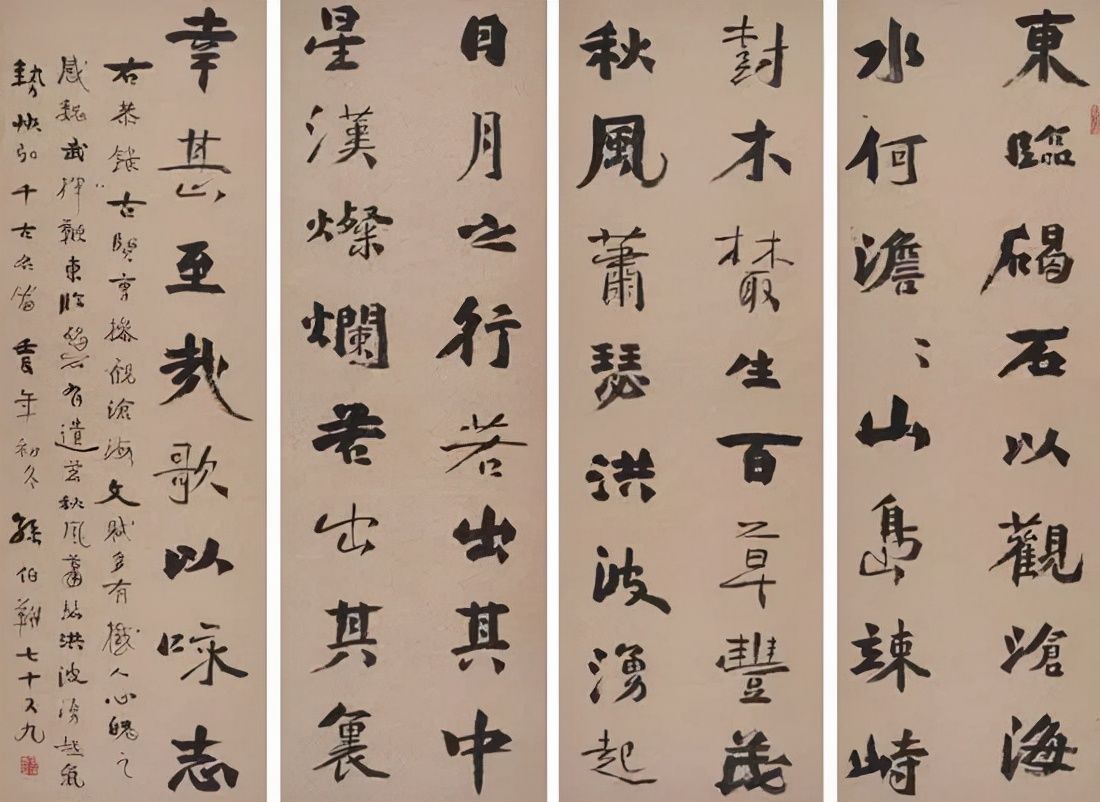 東臨碣石以觀滄海
水何澹〻山島竦峙
尌木叢生百草豐茂
秋風蕭瑟洪波湧起
日月之行若出其中
星漢燦爛若出其裏
幸甚至哉歌以咏志
右恭錄古賢曹操觀滄海文賦多有撼人心魄之
感魏武揮鞭東臨碣石有遺茲秋風蕭瑟洪波湧起氣
勢恢弘千古名篇壬辰年初冬孫伯翔七十又九